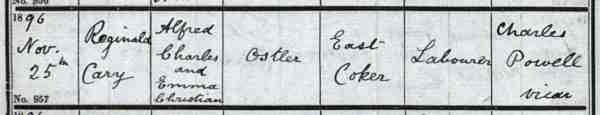 1896
Nov.
25th
No. 957
Reginald
Cary
Alfred
Charles
and
Emma
Christian
Ostler
East
Coker
Labourer
Charles
Powell
vicar